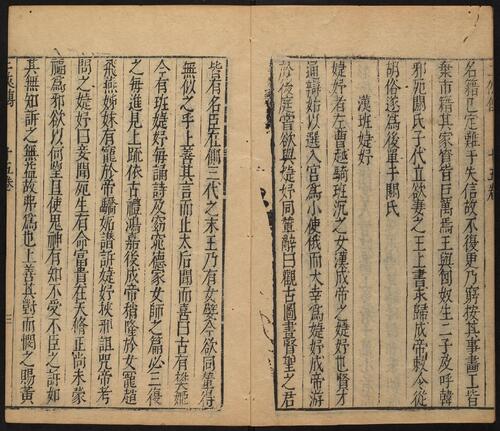 名籍已定難于失信故不復更乃窮按其事畫工皆
棄市籍其家貲皆巨萬焉王與匈奴生二子及呼韓
邪死閼氏子代立欲妻之王上書求歸成帝敕令從
胡俗遂為後單于閼氏
漢班婕妤
婕妤者左曹越騎班况之女漢成帝之婕妤也賢才
通辯始以選入宮為小使俄而大幸為婕妤成帝游
於後庭嘗欲與婕妤同輦辭曰觀古圖書賢聖之君
皆有名臣在側三代之末王乃有女嬖今欲同輦得
無似之乎上善其言而止太后聞而喜曰古有樊姬
今有班婕妤每誦詩及窈窕德家女師之篇必三復
之每進見上疏依古禮鴻嘉後成帝稍隆於女寵趙
飛燕姊妹有寵於帝驕妬譖訴婕妤挾邪詛咒帝考
問之婕妤曰妾聞死生有命富貴在天脩正尚未蒙
福為邪欲以何望且使鬼神有知不受不臣之訴如
其無知訴之無益故弗為也上善其對而憫之賜黃
十五卷
三